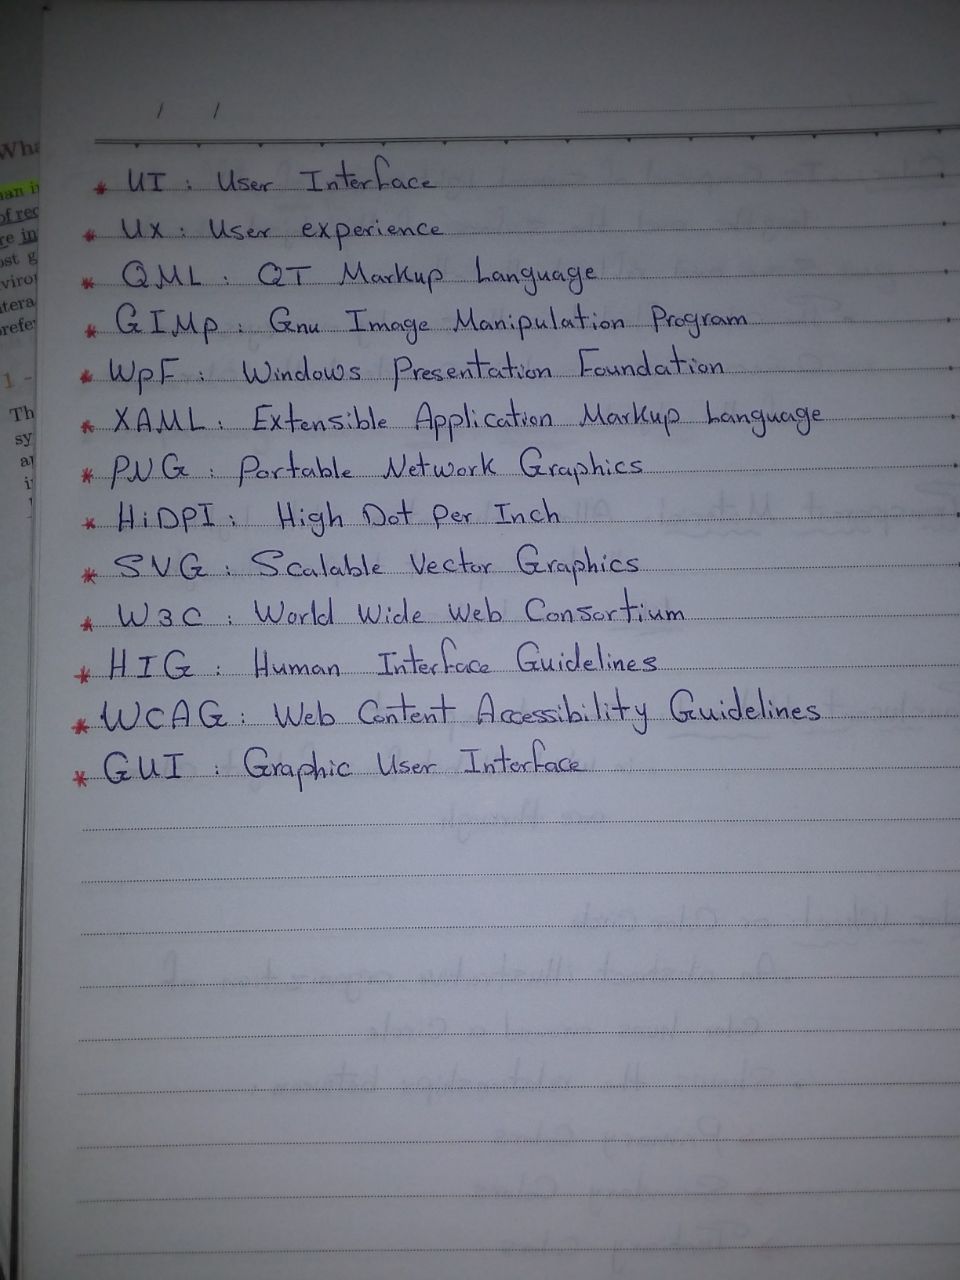 / /
* UI : User Interface
* Ux : User experience
* QML : QT Markup Language
* GIMp : Gnu Image Manipulation Program
* WpF : Windows Presentation Foundation
* XAML : Extensible Application Markup Language
* PNG : Portable Network Graphics
* HiDPI : High Dot Per Inch
* SVG : Scalable Vector Graphics
* W3C : World Wide Web Consortium
* HIG : Human Interface Guidelines
* WCAG : Web Content Accessibility Guidelines
* GUI : Graphic User Interface